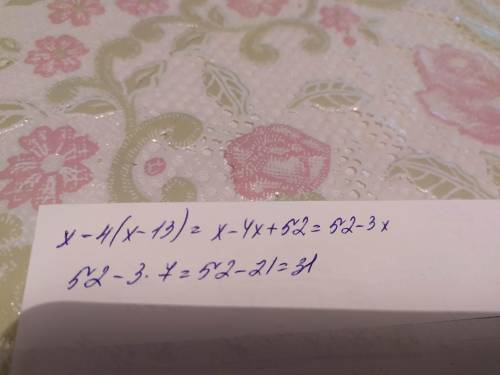 x-4(x-13)=x-4x+52=52-3x
52-3·7=52-21=31